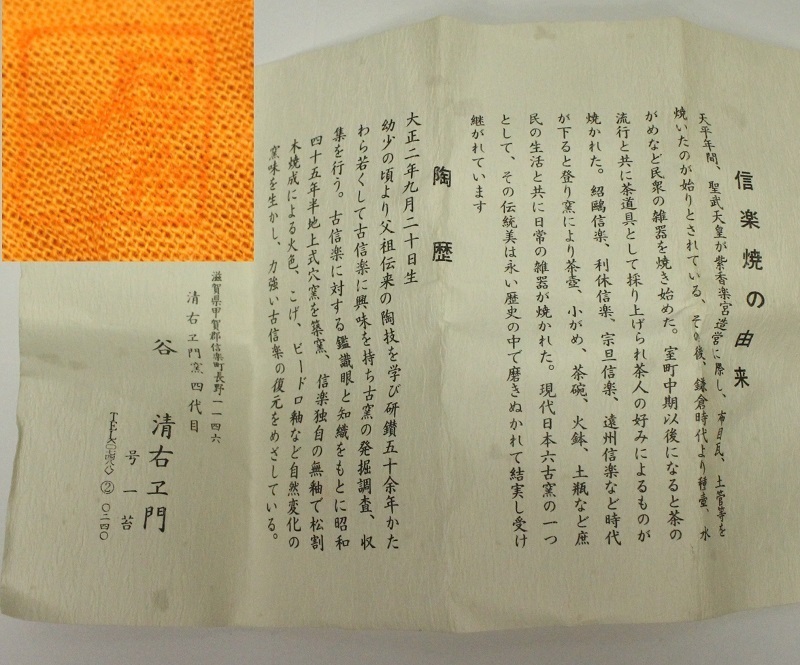 信楽焼の由来
天平年間、聖武天皇が紫香楽宮造営に際し、布目瓦、土管等を
焼いたのが始りとされている、その後、鎌倉時代より種壷、水
がめなど民衆の雑器を焼き始めた。室町中期以後になると茶の
流行と共に茶道具として採り上げられ茶人の好みによるものが
焼かれた。紹鴎信楽、利休信楽、宗旦信楽、遠州信楽など時代
が下ると登り窯により茶壷、小がめ、茶碗、火鉢、土瓶など庶
民の生活と共に日常の雑器が焼かれた。現代日本六古窯の一つ
として、その伝統美は永い歴史の中で磨きぬかれて結実し受け
継がれています
陶歴
大正二年九月二十日生
幼少の頃より父祖伝来の陶技を学び研鑽五十余年かた
わら若くして古信楽に興味を持ち古窯の発掘調査、収
集を行う。古信楽に対する鑑識眼と知織をもとに昭和
四十五年半地上式穴窯を築窯、信楽独自の無釉で松割
木焼成による火色、こげ、ビードロ釉など自然変化の
窯味を生かし、力強い古信楽の復元をめざしている。
滋賀県甲賀郡信楽町長野一一四六
清右ヱ門窯四代目
谷 清右ヱ門
号一苔
TEL ② 〇二四〇